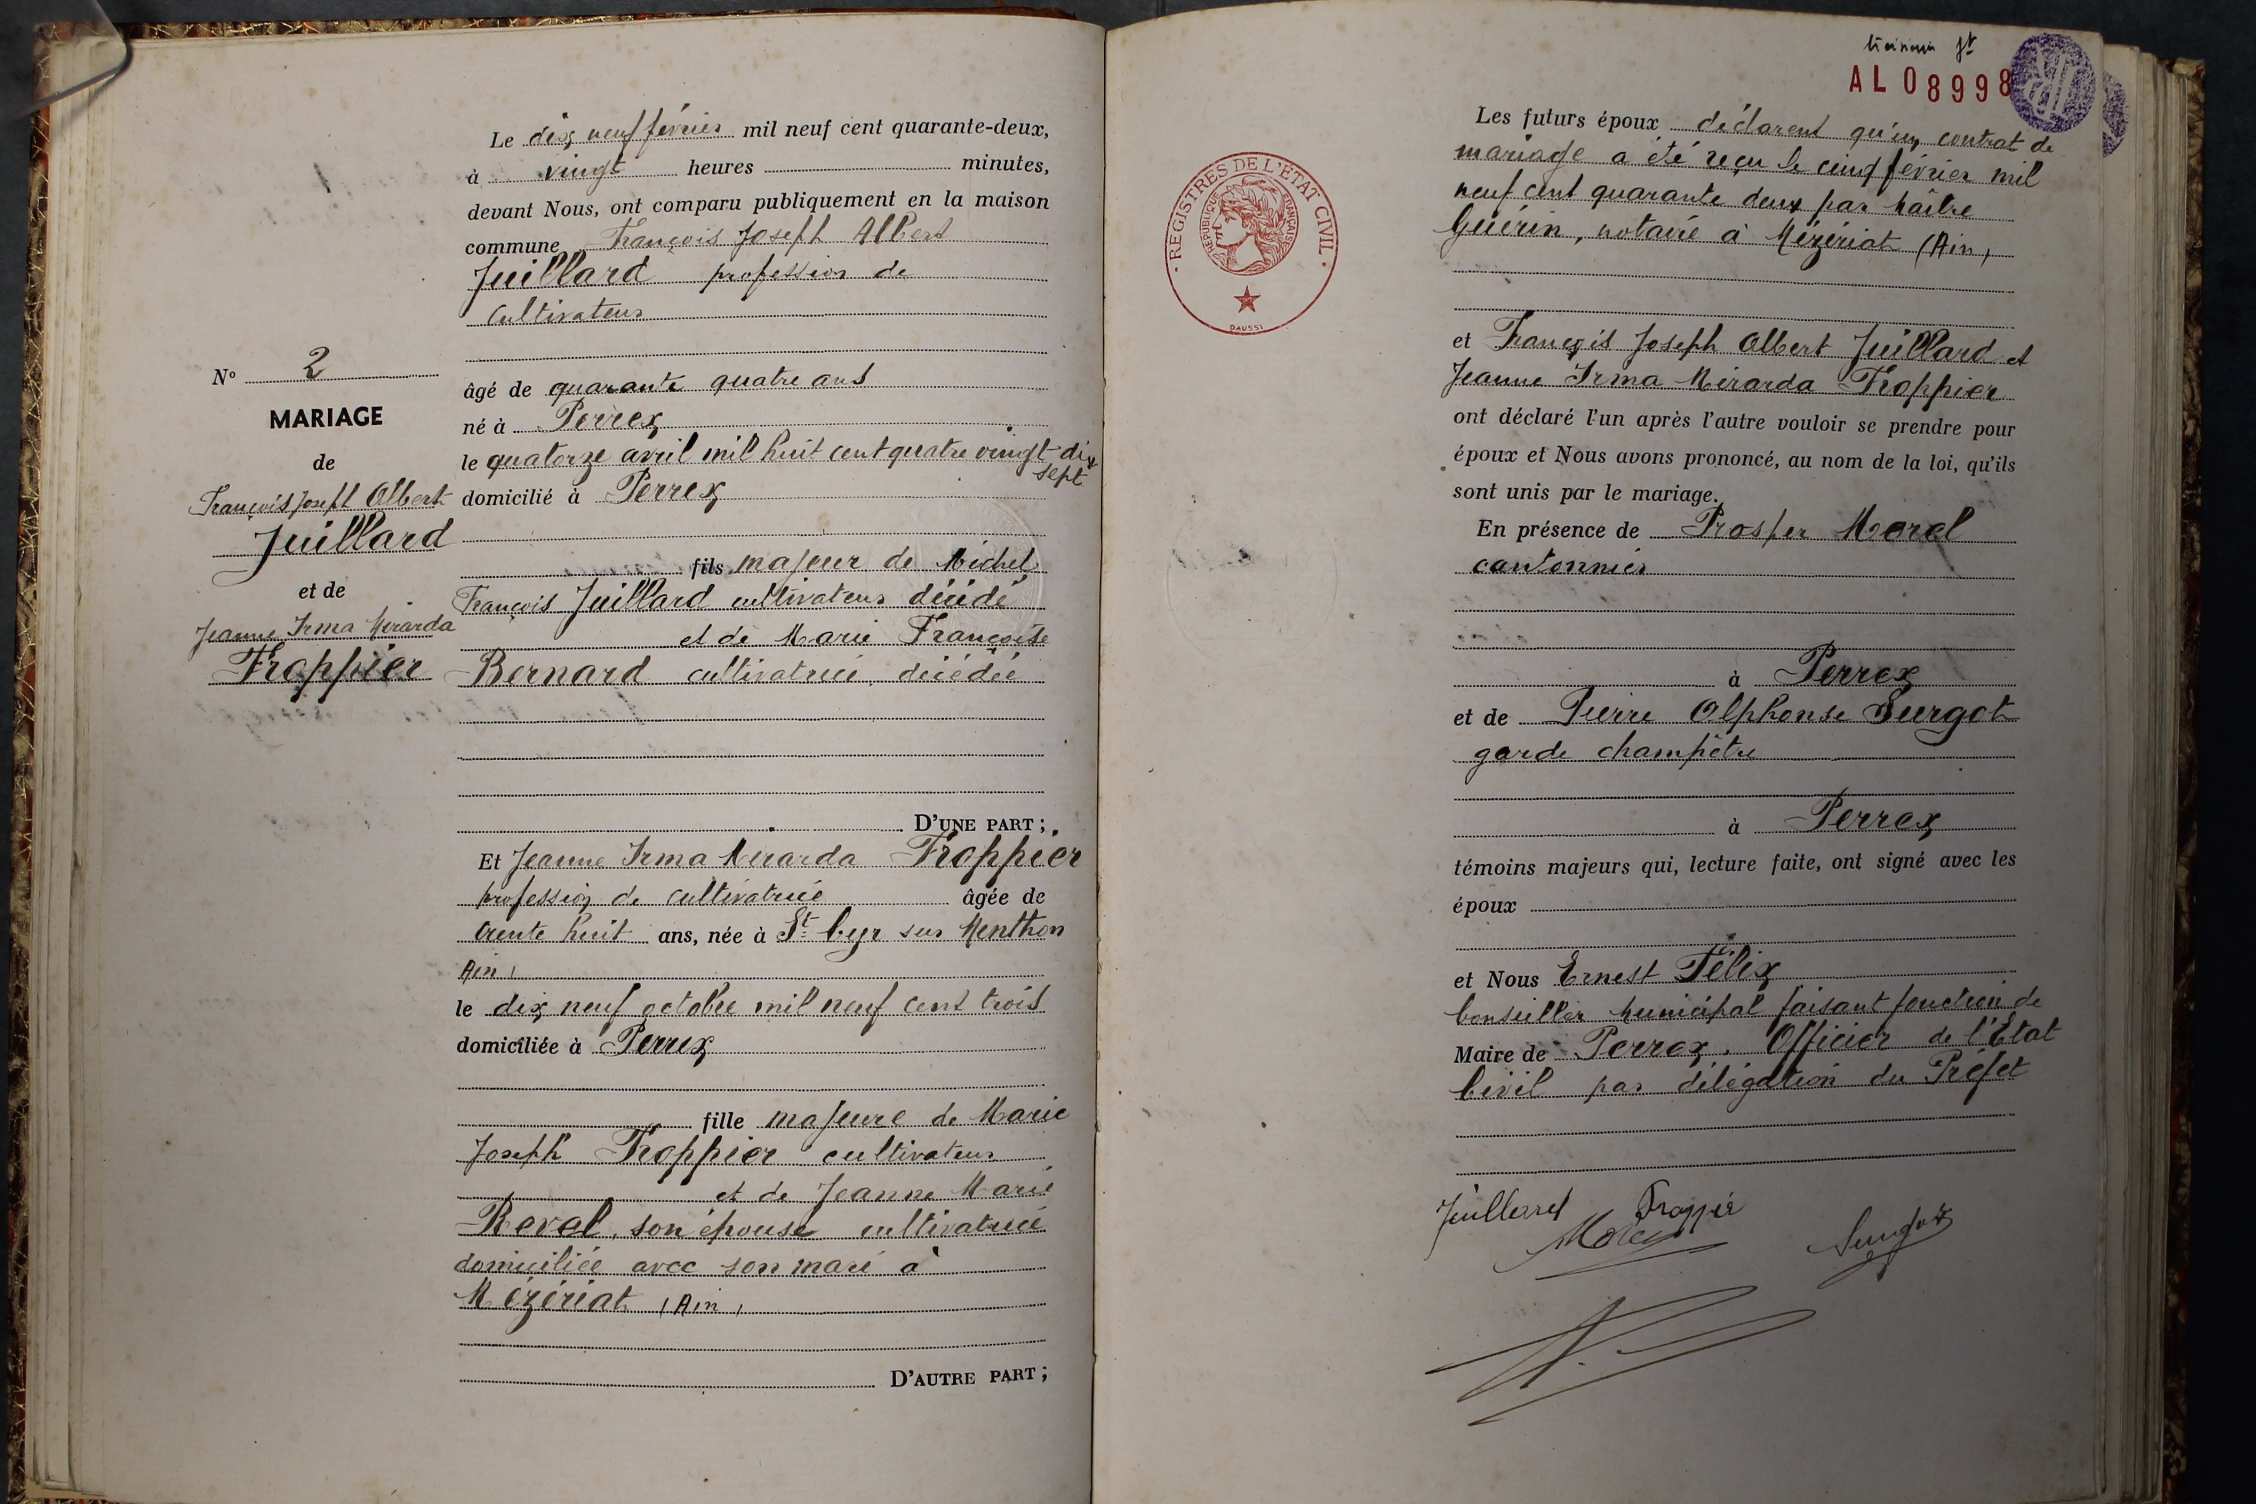 Le dix neuf février mil neuf cent quarante-deux,
à vingt heures minutes,
devant Nous, ont comparu publiquement en la maison
commune François Joseph Albert
Juillard profession de
cultivateur
âgé de quarante quatre ans
né à Perrex
le quatorze avril mil huit cent quatre vingt dix
sept
domicilié à Perrex
fils majeur de Michel
François Juillard cultivateur décédé
et de Marie Françoise
Bernard cultivatrice décédée
D'UNE PART ;
N° 2
MARIAGE
de
François Joseph Albert
Juillard
et de
Jeanne Irma Mérarda
Froppier
Et Jeanne Irma Mérarda Froppier
profession de cultivatrice âgée de
trente huit ans, née à St Cyr sur Menthon
Ain,
le dix neuf octobre mil neuf cent trois
domiciliée à Perrex
fille majeure de Marie
Joseph Froppier cultivateur
et de Jeanne Marie
Revel, son épouse cultivatrice
domiciliée avec son mari à
Mézériat (Ain)
D'AUTRE PART ;
AL 08998
REGISTRES DE L'ETAT CIVIL
REPUBLIQUE FRANÇAISE
DAUSSI
Les futurs époux déclarent qu'un contrat de
mariage a été reçu le cinq février mil
neuf cent quarante deux par Maître
Guérin, notaire à Mézériat (Ain)
et François Joseph Albert Juillard et
Jeanne Irma Mérarda Froppier
ont déclaré l'un après l'autre vouloir se prendre pour
époux et Nous avons prononcé, au nom de la loi, qu'ils
sont unis par le mariage.
En présence de Prosper Morel
cantonnier
à Perrex
et de Pierre Alphonse Surgot
garde champêtre
à Perrex
témoins majeurs qui, lecture faite, ont signé avec les
époux
et Nous Ernest Félix
Conseiller Municipal faisant fonction de
Maire de Perrex. Officier de l'Etat
Civil par délégation du Préfet
Juillard Froppier
Morel Surgot